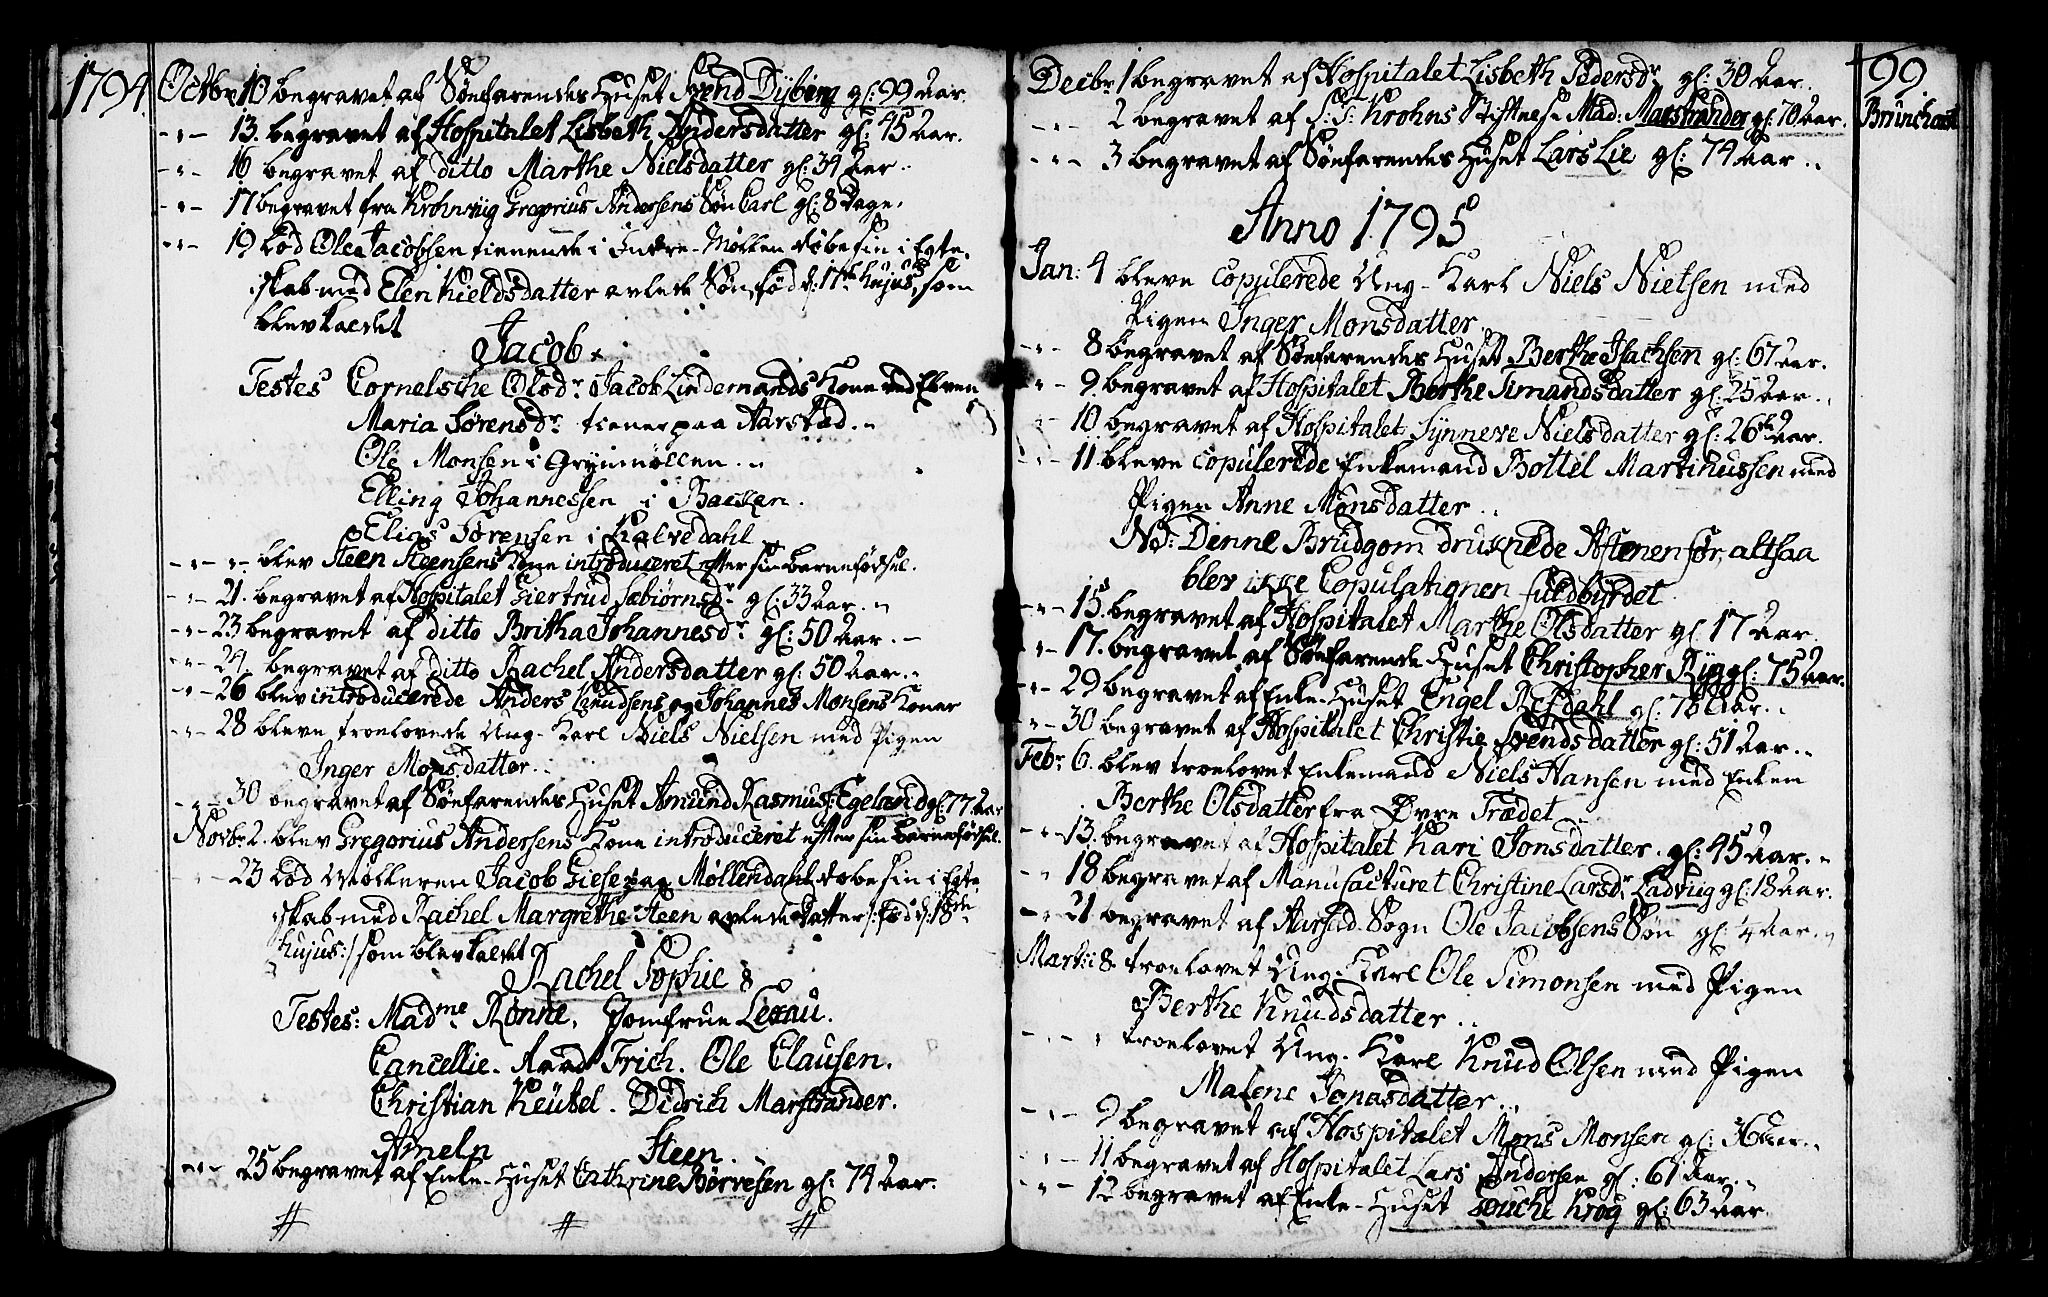 1794.
Octbr 10 begravet af Søefarendes Huset Svend Dybing gl: 99 Aar.
-"- 13. begravet af Hospitalet Lisbeth Andersdatter gl: 45 Aar.
-"- 16 begravet af ditto Marthe Nielsdatter gl: 34 Aar..
-"- 17 begravet fra Krohnviig Gregorius Andersens Søn Carl gl: 8 Dage.
-"- 19 Lod Ole Jacobsen tienende i Indre-Møllen døbe sin i Egte-
skab med Elen Kieldsdatter avlede Søn, fød d: 17de hujus, som
blev kaldet
Jacob.
Testes Cornelsche Olsdr. Jacob Lindemands Kone ved Elven
Maria Sørensdr. tiener paa Aarstad.
Ole Monsen i Grynmøllen.
Elling Johannessen i Backen.
Elias Sørensen i Kalvedahl
-"- "- blev Steen Steensens Kone introduceret efter sin Barnefødsel.
-"- 21. begravet af Hospitalet Giertrud Sæbiørnsdr. gl: 33 Aar.
-"- 23 begravet af ditto Britha Johannesdr. gl: 50 Aar.
-"- 24. begravet af ditto Rachel Andersdatter gl: 50 Aar.
-"- 26 blev introducerede Anders Knudsens og Johannes Monsens Koner
-"- 28 bleve troelovede Ung-Karl Niels Nielsen med Pigen
Inger Monsdatter.
-"- 30 begravet af Søefarendes Huset Amund Rasmus: Egeland gl: 77 Aar
Novbr 2. blev Gregorius Andersens Kone introduceret efter sin Barnefødsel.
-"- 23 Lod Mølleren Jacob Giese paa Møllendahl døbe sin i Egte-
skab med Rachel Margrethe Steen avlede Datter /: fød d: 18de
hujus :/ som blev kaldet
Rachel Sophie
Testes: Madme. Rønne. Jomfrue Lexau.
Cancellie-Raad Frich. Ole Clausen.
Christian Keübel. Didrich Marstrander.
Ameln Steen.
-"- 25 begravet af Enke-Huset Cathrine Børvesen gl: 74 Aar.
# # #
99
Decbr 1 begravet af Hospitalet Lisbeth Pedersdr. gl: 30 Aar.
-"- 2 begravet af S: T: Krohns Stiftelse Mad: Marstrander gl: 70 Aar. Brunchorst
-"- 3 begravet af Søefarendes Huset Lars Lie gl: 74 Aar..
Anno 1795
Jan: 4 bleve copulerede Ung-Karl Niels Nielsen med
Pigen Inger Monsdatter.
-"- 8 begravet af Søefarendes Huset Berthe Isachsen gl: 67 Aar.
-"- 9. begravet af Hospitalet Berthe Simandsdatter gl: 25 Aar..
-"- 10 begravet af Hospitalet Synneve Nielsdatter gl: 26 Aar.
-"- 11. bleve copulerede Enkemand Bottel Marthussen med
Pigen Anne Monsdatter..
NB: Denne Brudgom druknede Aftenen før, altsaa
blev ikke Copulationen fuldbyrdet
-"- 15. begravet af Hospitalet Marthe Olsdatter gl: 17 Aar.
-"- 17. begravet af Søefarende Huset Christopher Ryg gl: 75 Aar.
-"- 29 begravet af Enke-Huset Engel Refdahl gl: 78 Aar..
-"- 30 begravet af Hospitalet Christie Svendsdatter gl: 51 Aar..
Febr. 6. blev troelovet Enkemand Niels Hansen med Enken
Berthe Olsdatter fra Øvre Frædet
-"- 13. begravet af Hospitalet Kari Jonsdatter. gl: 45 Aar..
-"- 18 begravet af Manufacturet Christine Larsdr. Ladvug gl: 18 Aar.
-"- 21 begravet af Aarstad Sogn Ole Jacobsens Søn gl: 4 Aar..
Martii 8. troelovet Ung-Karl Ole Simonsen med Pigen
Berthe Knudsdatter..
-"- " troelovet Ung-Karl Knud Olsen med Pigen
Malene Jonasdatter..
-"- 9 begravet af Hospitalet Mons Monsen gl: Aar..
-"- 11 begravet af Hospitalet Lars Andersen gl: 61 Aar..
-"- 12 begravet af Enke-Huset Krog gl: 63 Aar.